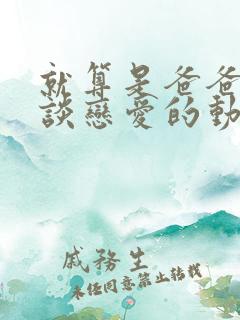 就算是爸爸
談戀愛的動
戚務生
未經同意禁止轉載